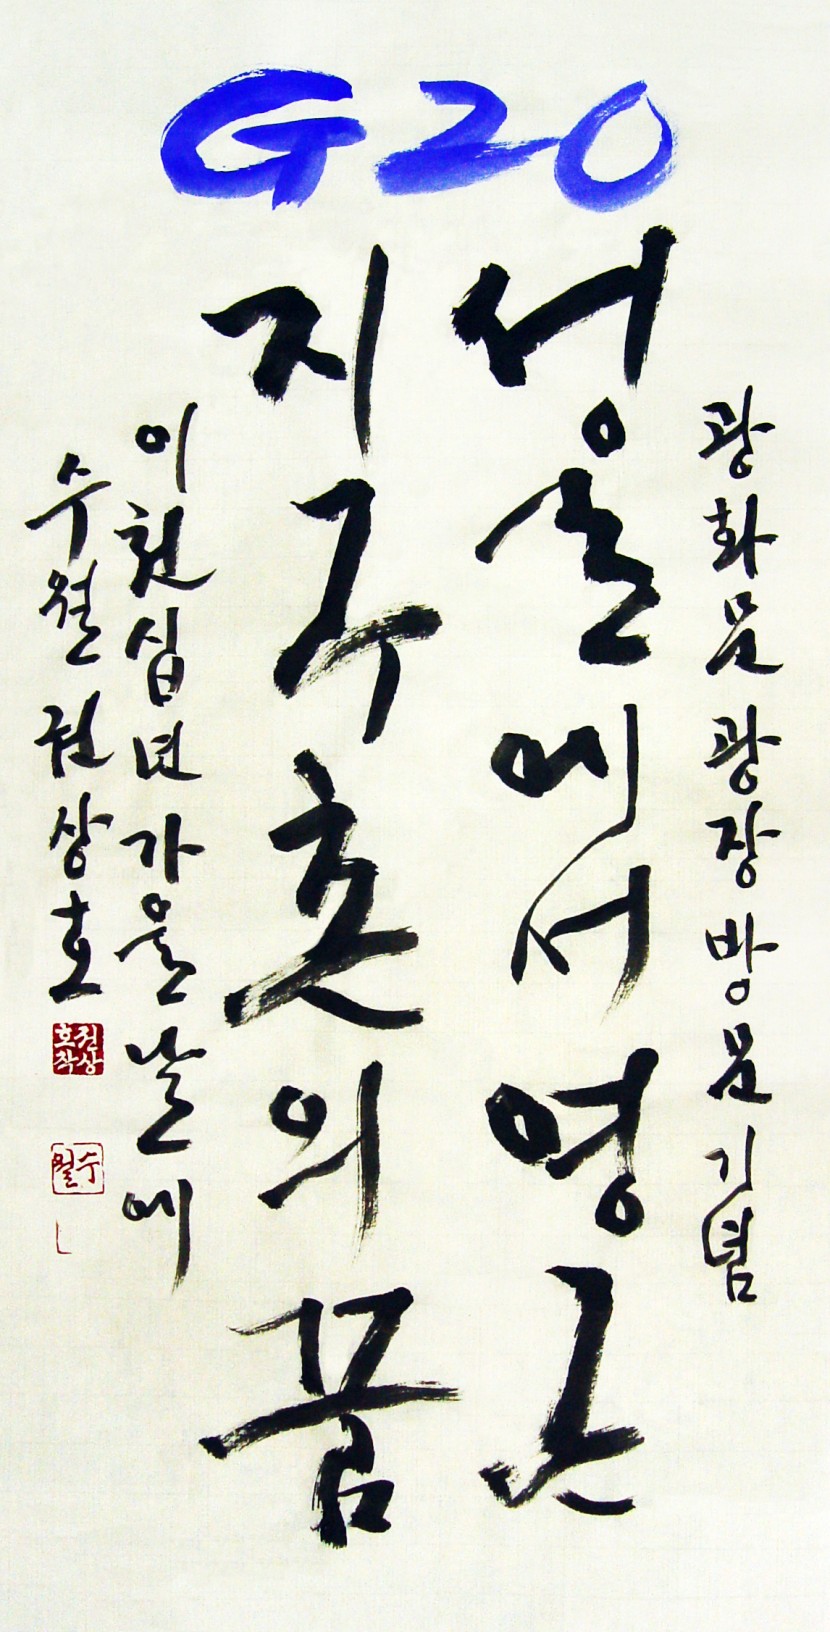 G20
광화문 광장 방문 기념
서울에서 영근
지구촌의 꿈
이천십년 가을날에
수월 권상호
권상
호작
수월